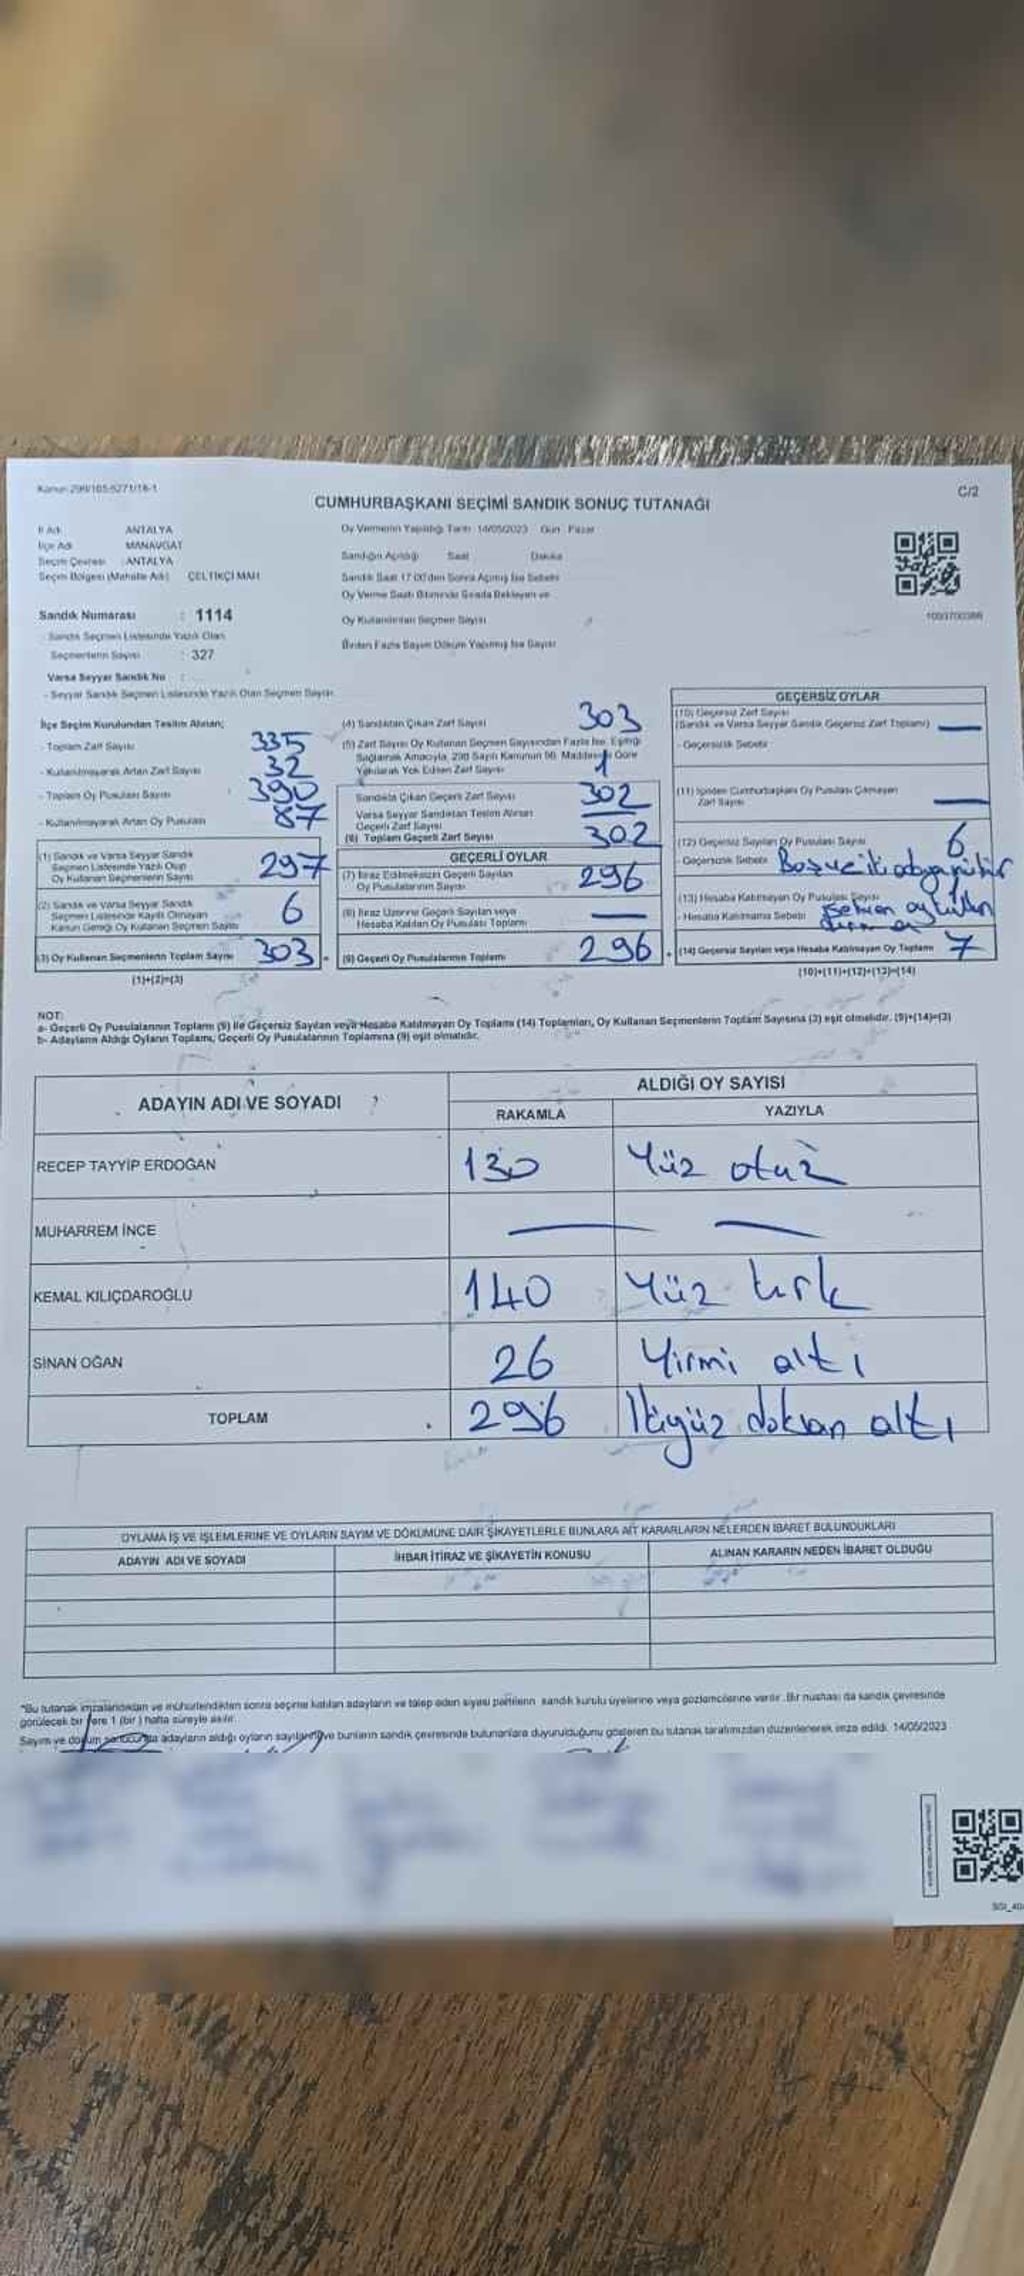 Kanun 298/105-6271/16-1
C/2
CUMHURBAŞKANI SEÇİMİ SANDIK SONUÇ TUTANAĞI
İl Adı ANTALYA
İlçe Adı MANAVGAT
Seçim Çevresi : ANTALYA
Seçim Bölgesi (Mahalle Adı) ÇELTİKÇİ MAH.
Sandık Numarası : 1114
- Sandık Seçmen Listesinde Yazılı Olan
Seçmenlerin Sayısı : 327
Varsa Seyyar Sandık No :
- Seyyar Sandık Seçmen Listesinde Yazılı Olan Seçmen Sayısı
Oy Vermenin Yapıldığı Tarih 14/05/2023 Gün Pazar
Sandığın Açıldığı Saat Dakika
Sandık Saat 17.00'den Sonra Açılmış İse Sebebi
Oy Verme Saati Bitiminde Sırada Bekleyen ve
Oy Kullandırılan Seçmen Sayısı
Birden Fazla Sayım Döküm Yapılmış İse Sayısı
İlçe Seçim Kurulundan Teslim Alınan;
- Toplam Zarf Sayısı 335
- Kullanılmayarak Artan Zarf Sayısı 32
- Toplam Oy Pusulası Sayısı 390
- Kullanılmayarak Artan Oy Pusulası 87
(1) Sandık ve Varsa Seyyar Sandık
Seçmen Listesinde Yazılı Olup
Oy Kullanan Seçmenlerin Sayısı 297
(2) Sandık ve Varsa Seyyar Sandık
Seçmen Listesinde Kayıtlı Olmayan
Kanun Gereği Oy Kullanan Seçmen Sayısı 6
(3) Oy Kullanan Seçmenlerin Toplam Sayısı 303
(1)+(2)=(3)
(4) Sandıktan Çıkan Zarf Sayısı 303
(5) Zarf Sayısı Oy Kullanan Seçmen Sayısından Fazla İse, Eşitliği
Sağlamak Amacıyla, 298 Sayılı Kanunun 98. Maddesine Göre
Yakılarak Yok Edilen Zarf Sayısı 1
Sandıkta Çıkan Geçerli Zarf Sayısı 302
Varsa Seyyar Sandıktan Teslim Alınan
Geçerli Zarf Sayısı
(6) Toplam Geçerli Zarf Sayısı 302
GEÇERLİ OYLAR
(7) İtiraz Edilmeksizin Geçerli Sayılan
Oy Pusulalarının Sayısı 296
(8) İtiraz Üzerine Geçerli Sayılan veya
Hesaba Katılan Oy Pusulası Toplamı —
(9) Geçerli Oy Pusulalarının Toplamı 296
GEÇERSİZ OYLAR
(10) Geçersiz Zarf Sayısı
(Sandık ve Varsa Seyyar Sandık Geçersiz Zarf Toplamı) —
- Geçersizlik Sebebi
(11) İçinden Cumhurbaşkanı Oy Pusulası Çıkmayan
Zarf Sayısı —
(12) Geçersiz Sayılan Oy Pusulası Sayısı 6
- Geçersizlik Sebebi Boş ve iki adaya mühür
(13) Hesaba Katılmayan Oy Pusulası Sayısı 1
- Hesaba Katılmama Sebebi
(14) Geçersiz Sayılan veya Hesaba Katılmayan Oy Toplamı 7
(10)+(11)+(12)+(13)=(14)
NOT:
a- Geçerli Oy Pusulalarının Toplamı (9) ile Geçersiz Sayılan veya Hesaba Katılmayan Oy Toplamı (14) Toplamları, Oy Kullanan Seçmenlerin Toplam Sayısına (3) eşit olmalıdır. (9)+(14)=(3)
b- Adayların Aldığı Oyların Toplamı, Geçerli Oy Pusulalarının Toplamına (9) eşit olmalıdır.
ADAYIN ADI VE SOYADI
ALDIĞI OY SAYISI
RAKAMLA YAZIYLA
RECEP TAYYİP ERDOĞAN 130 Yüz otuz
MUHARREM İNCE — —
KEMAL KILIÇDAROĞLU 140 Yüz kırk
SİNAN OĞAN 26 Yirmi altı
TOPLAM 296 İkiyüz doksan altı
OYLAMA İŞ VE İŞLEMLERİNE VE OYLARIN SAYIM VE DÖKÜMÜNE DAİR ŞİKAYETLERLE BUNLARA AİT KARARLARIN NELERDEN İBARET BULUNDUKLARI
ADAYIN ADI VE SOYADI İHBAR İTİRAZ VE ŞİKAYETİN KONUSU ALINAN KARARIN NEDEN İBARET OLDUĞU
*Bu tutanak imzalandıktan ve mühürlendikten sonra seçime katılan adayların ve talep eden siyasi partilerin sandık kurulu üyelerine veya gözlemcilerine verilir. Bir nüshası da sandık çevresinde
görülecek bir yere 1 (bir) hafta süreyle asılır.
Sayım ve döküm sonucunda adayların aldığı oyların sayılarını ve bunların sandık çevresinde bulunanlara duyurulduğunu gösteren bu tutanak tarafımızdan düzenlenerek imza edildi. 14/05/2023